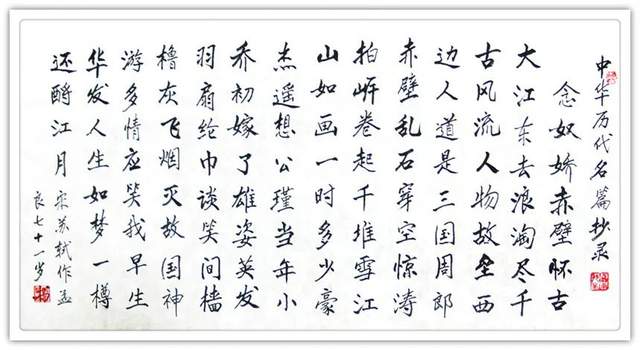 中华历代名篇抄录
念奴娇赤壁怀古
大江东去浪淘尽千
古风流人物故垒西
边人道是三国周郎
赤壁乱石穿空惊涛
拍岸卷起千堆雪江
山如画一时多少豪
杰遥想公瑾当年小
乔初嫁了雄姿英发
羽扇纶巾谈笑间樯
橹灰飞烟灭故国神
游多情应笑我早生
华发人生如梦一樽
还酹江月
宋苏轼作孟
良七十一岁